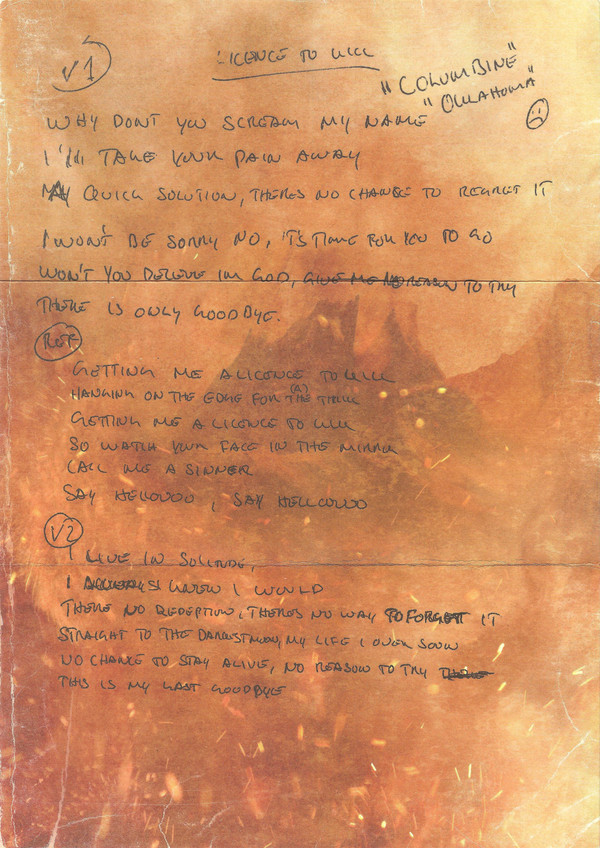 V1
LICENCE TO KILL
"COLUMBINE"
"OKLAHOMA"
WHY DON'T YOU SCREAM MY NAME
I'LL TAKE YOUR PAIN AWAY
MY QUICK SOLUTION, THERES NO CHANCE TO REGRET IT
I WON'T BE SORRY NO, IT'S TIME FOR YOU TO GO
WON'T YOU BELIEVE IM GOD, GIVE ME NO REASON TO TRY
THERE IS ONLY GOODBYE.
REF
GETTING ME A LICENCE TO KILL
HANGING ON THE EDGE FOR THE (A) THRILL
GETTING ME A LICENCE TO KILL
SO WATCH YOUR FACE IN THE MIRROR
CALL ME A SINNER
SAY HELLOOOO, SAY HELLOOOO
V2
I LIVE IN SOLITUDE,
I KNEW I WOULD
THERE NO REDEPTION, THERES NO WAY TO FORGET IT
STRAIGHT TO THE DARKEST MOON, MY LIFE I OVER SOON
NO CHANCE TO STAY ALIVE, NO REASON TO TRY
THIS IS MY LAST GOODBYE